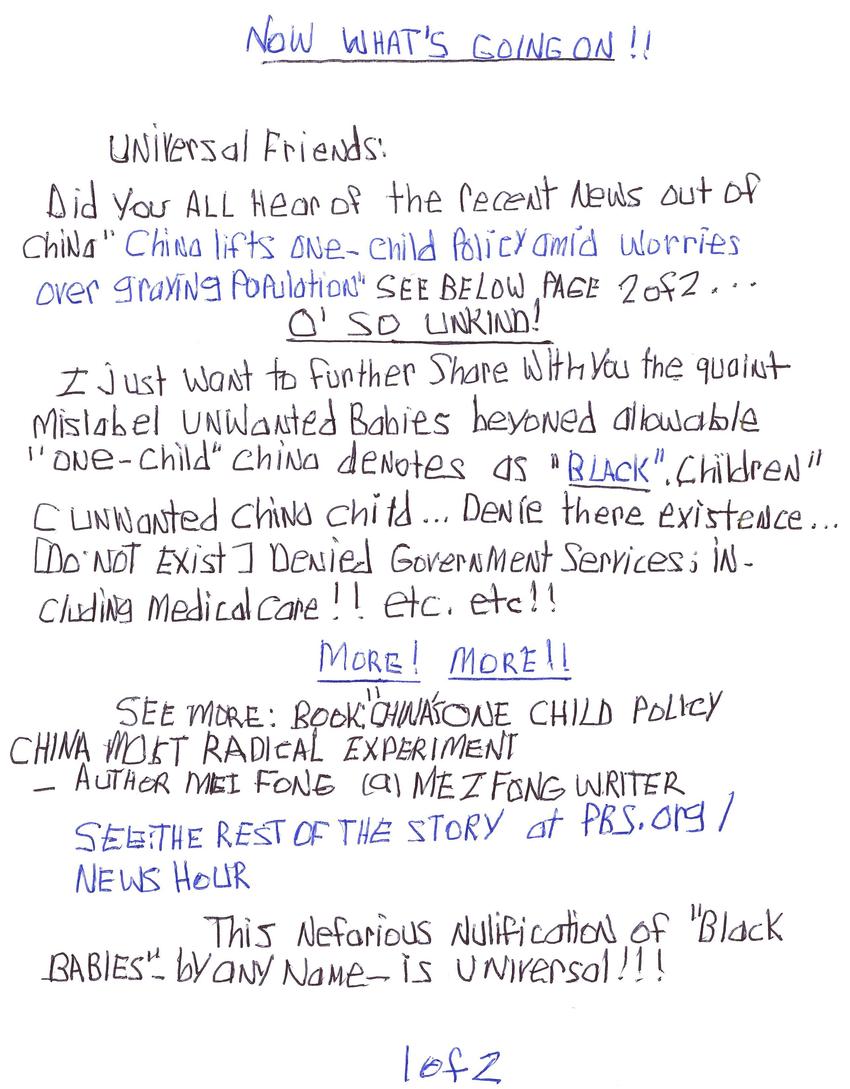 NOW WHAT'S GOING ON !!
UNIVersal Friends:
Did You ALL Hear of the recent News out of
China" China lifts ONE-child Policy amid worries
over graying Population" SEE BELOW PAGE 2 of 2...
O' SO UNKIND!
I just want to further Share With You the quaint
Mislabel UNWanted Babies beyoned allowable
"ONE-Child" China denotes as "BLACK". Children"
[ UNWanted China child... Denie there existence...
[Do NOT EXist] Denied Government Services; IN-
cluding Medical Care !! etc. etc!!
MORE! MORE!!
SEE MORE: BOOK: "CHINA'S ONE CHILD POLICY
CHINA MOST RADICAL EXPERIMENT
- AUTHOR MEI FONG (a) MEI FONG WRITER
SEE: THE REST OF THE STORY at PBS.org /
NEWS HOUR
This Nefarious Nulification of "Black
BABIES" - by ANY Name - is UNIVersal!!!
1 of 2